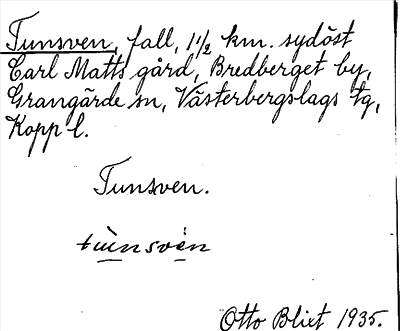 Tunsven, fall, 1½ km. sydöst
Carl Matts gård, Bredberget by,
Grangärde sn, Västerbergslags tg,
Kopp l.
Tunsven.
Otto Blixt 1935.